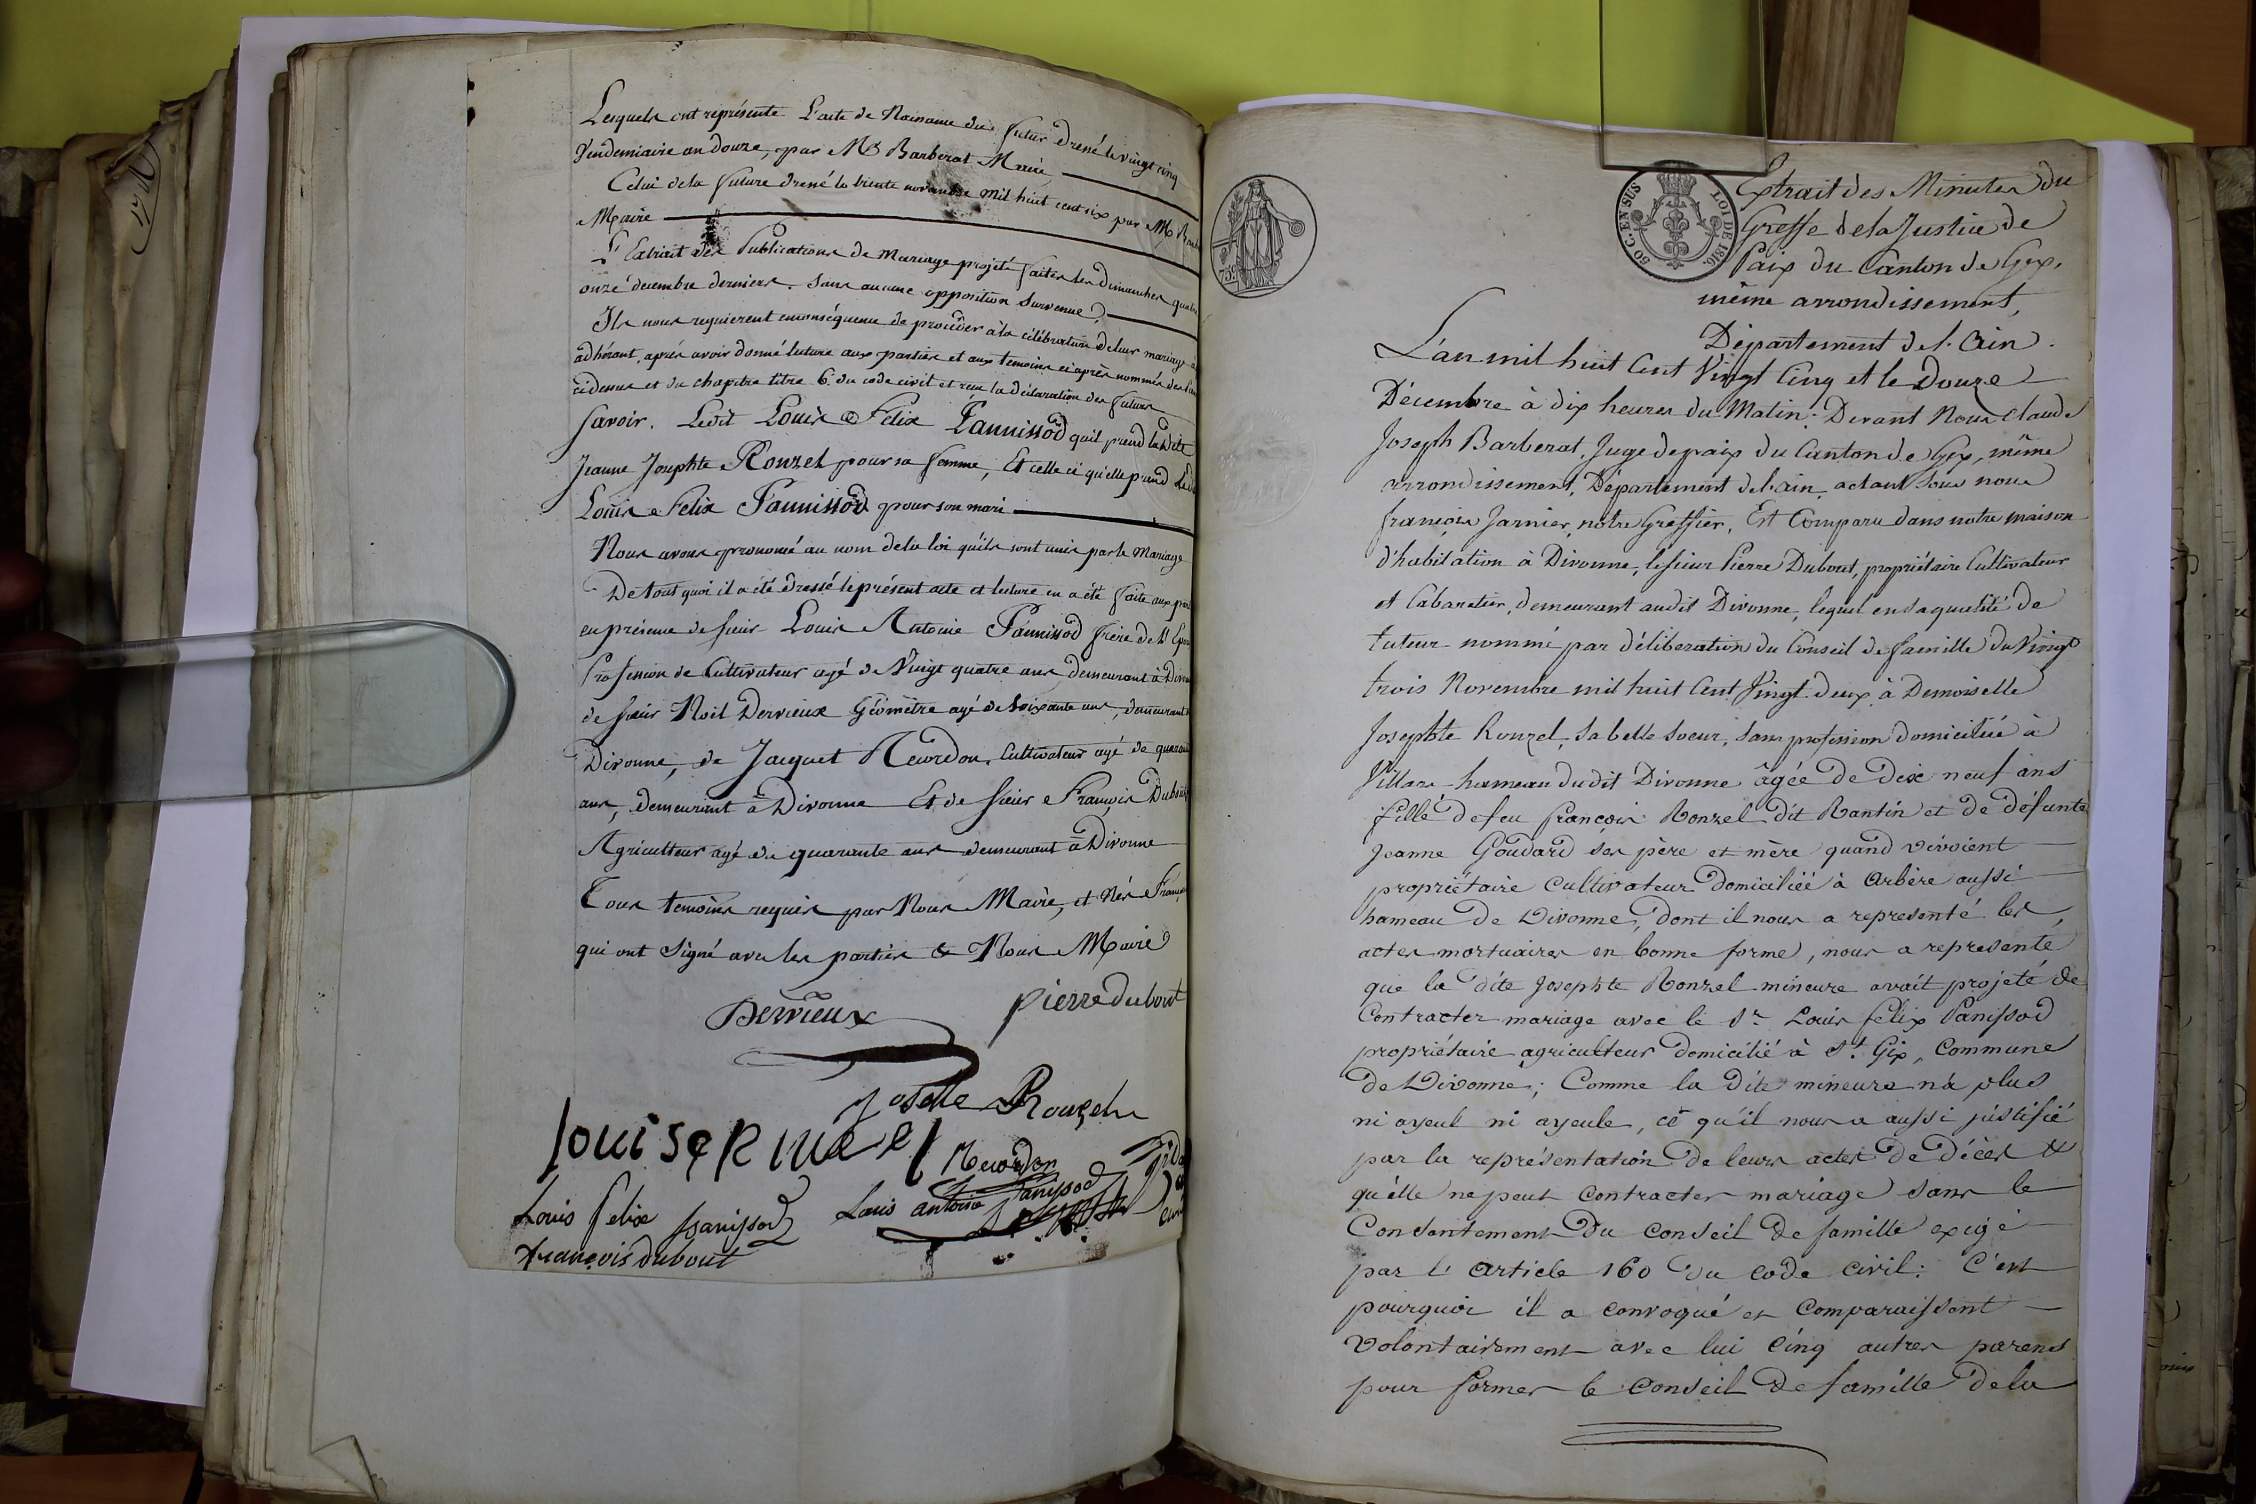 Lesquels ont représenté L'acte de Naissance du futur dressé le vingt cinq
Vendemiaire an douze, par Mr Barberat Maire
Celui de la future dressé le trente novembre mil huit cent six par Mr
Maire
L'Extrait des Publications de Mariage projeté faites les dimanches quatre
onze décembre derniers. Sans aucune opposition Survenue
Ils nous requierent en conséquence de procéder à la célébration de leur mariage
adhérant, après avoir donné lecture aux parties et aux temoins ci après nommés des
ci dessus et du chapitre titre 6. du code civil et reçu la déclaration des futurs
Savoir. Ledit Louis Felix Pannissod qu'il prend la dite
Jeanne Josephte Ronzel pour sa femme, Et celle ci qu'elle prend Ledit
Louis Felix Pannissod pour son mari
Nous avons prononcé au nom de la loi qu'ils sont unis par le Mariage
De tout quoi il a été dressé le présent acte et lecture en a été faite aux
en présence de sieur Louis Antoine Pannissod frère de l'
Profession de Cultivateur agé de Vingt quatre ans demeurant à
de sieur Noël Dervieux Géomètre agé de soixante ans, demeurant
Divonne, de Jacquet Cultivateur agé de
ans, demeurant à Divonne Et de sieur François Dubout
Agriculteur agé de quarante ans demeurant à Divonne
Tous temoins requis par Nous Maire, et
qui ont Signé avec les parties & Nous Maire
Dervieux
pierre dubout
Josette Rouzel
Louis antoine Panissod
Louis felix panissod
françois dubout
75c
50 C. EN SUS
LOI DE 1816.
Extrait des Minutes du
Greffe de la Justice de
Paix du Canton de Gex,
même arrondissement,
Département de l'Ain.
L'an mil huit Cent Vingt Cinq et le Douze
Décembre à dix heures du Matin. Devant Nous Claude
Joseph Barberat, Juge de paix du Canton de Gex, même
arrondissement, Département de l'ain, actant sous nous
françois Jarnier, notre Greffier, Est Comparu dans notre maison
d'habitation à Divonne, le sieur Pierre Dubout, propriétaire Cultivateur
et Cabaretier, demeurant audit Divonne, lequel en sa qualité de
tuteur nommé par délibération du Conseil de famille du Vingt
trois Novembre mil huit Cent Vingt-deux à Demoiselle
Josephte Ronzel, sa belle soeur, sans profession domiciliée à
Villars hameau dudit Divonne âgée de dix neuf ans
fille de feu françois Ronzel dit Rantin et de défunte
Jeanne Goudard ses père et mère quand vivoient
propriétaire cultivateur domiciliés à Arbère aussi
hameau de Divonne, dont il nous a representé les
actes mortuaires en bonne forme, nous a representé
que la dite Josephte Ronzel mineure avait projeté de
Contracter mariage avec le Sr. Louis felix Panissod
propriétaire agriculteur domicilié à St. Gix, Commune
de Divonne; Comme la dite mineure n'a plus
ni ayeul ni ayeule, ce qu'il nous a aussi justifié
par la représentation de leurs actes de décès &
qu'elle ne peut contracter mariage sans le
Consentement du Conseil de famille exigé
par l'article 160 du code civil: C'est
pourquoi il a convoqué et Comparaissent
volontairement avec lui cinq autres parens
pour former le conseil de famille de la